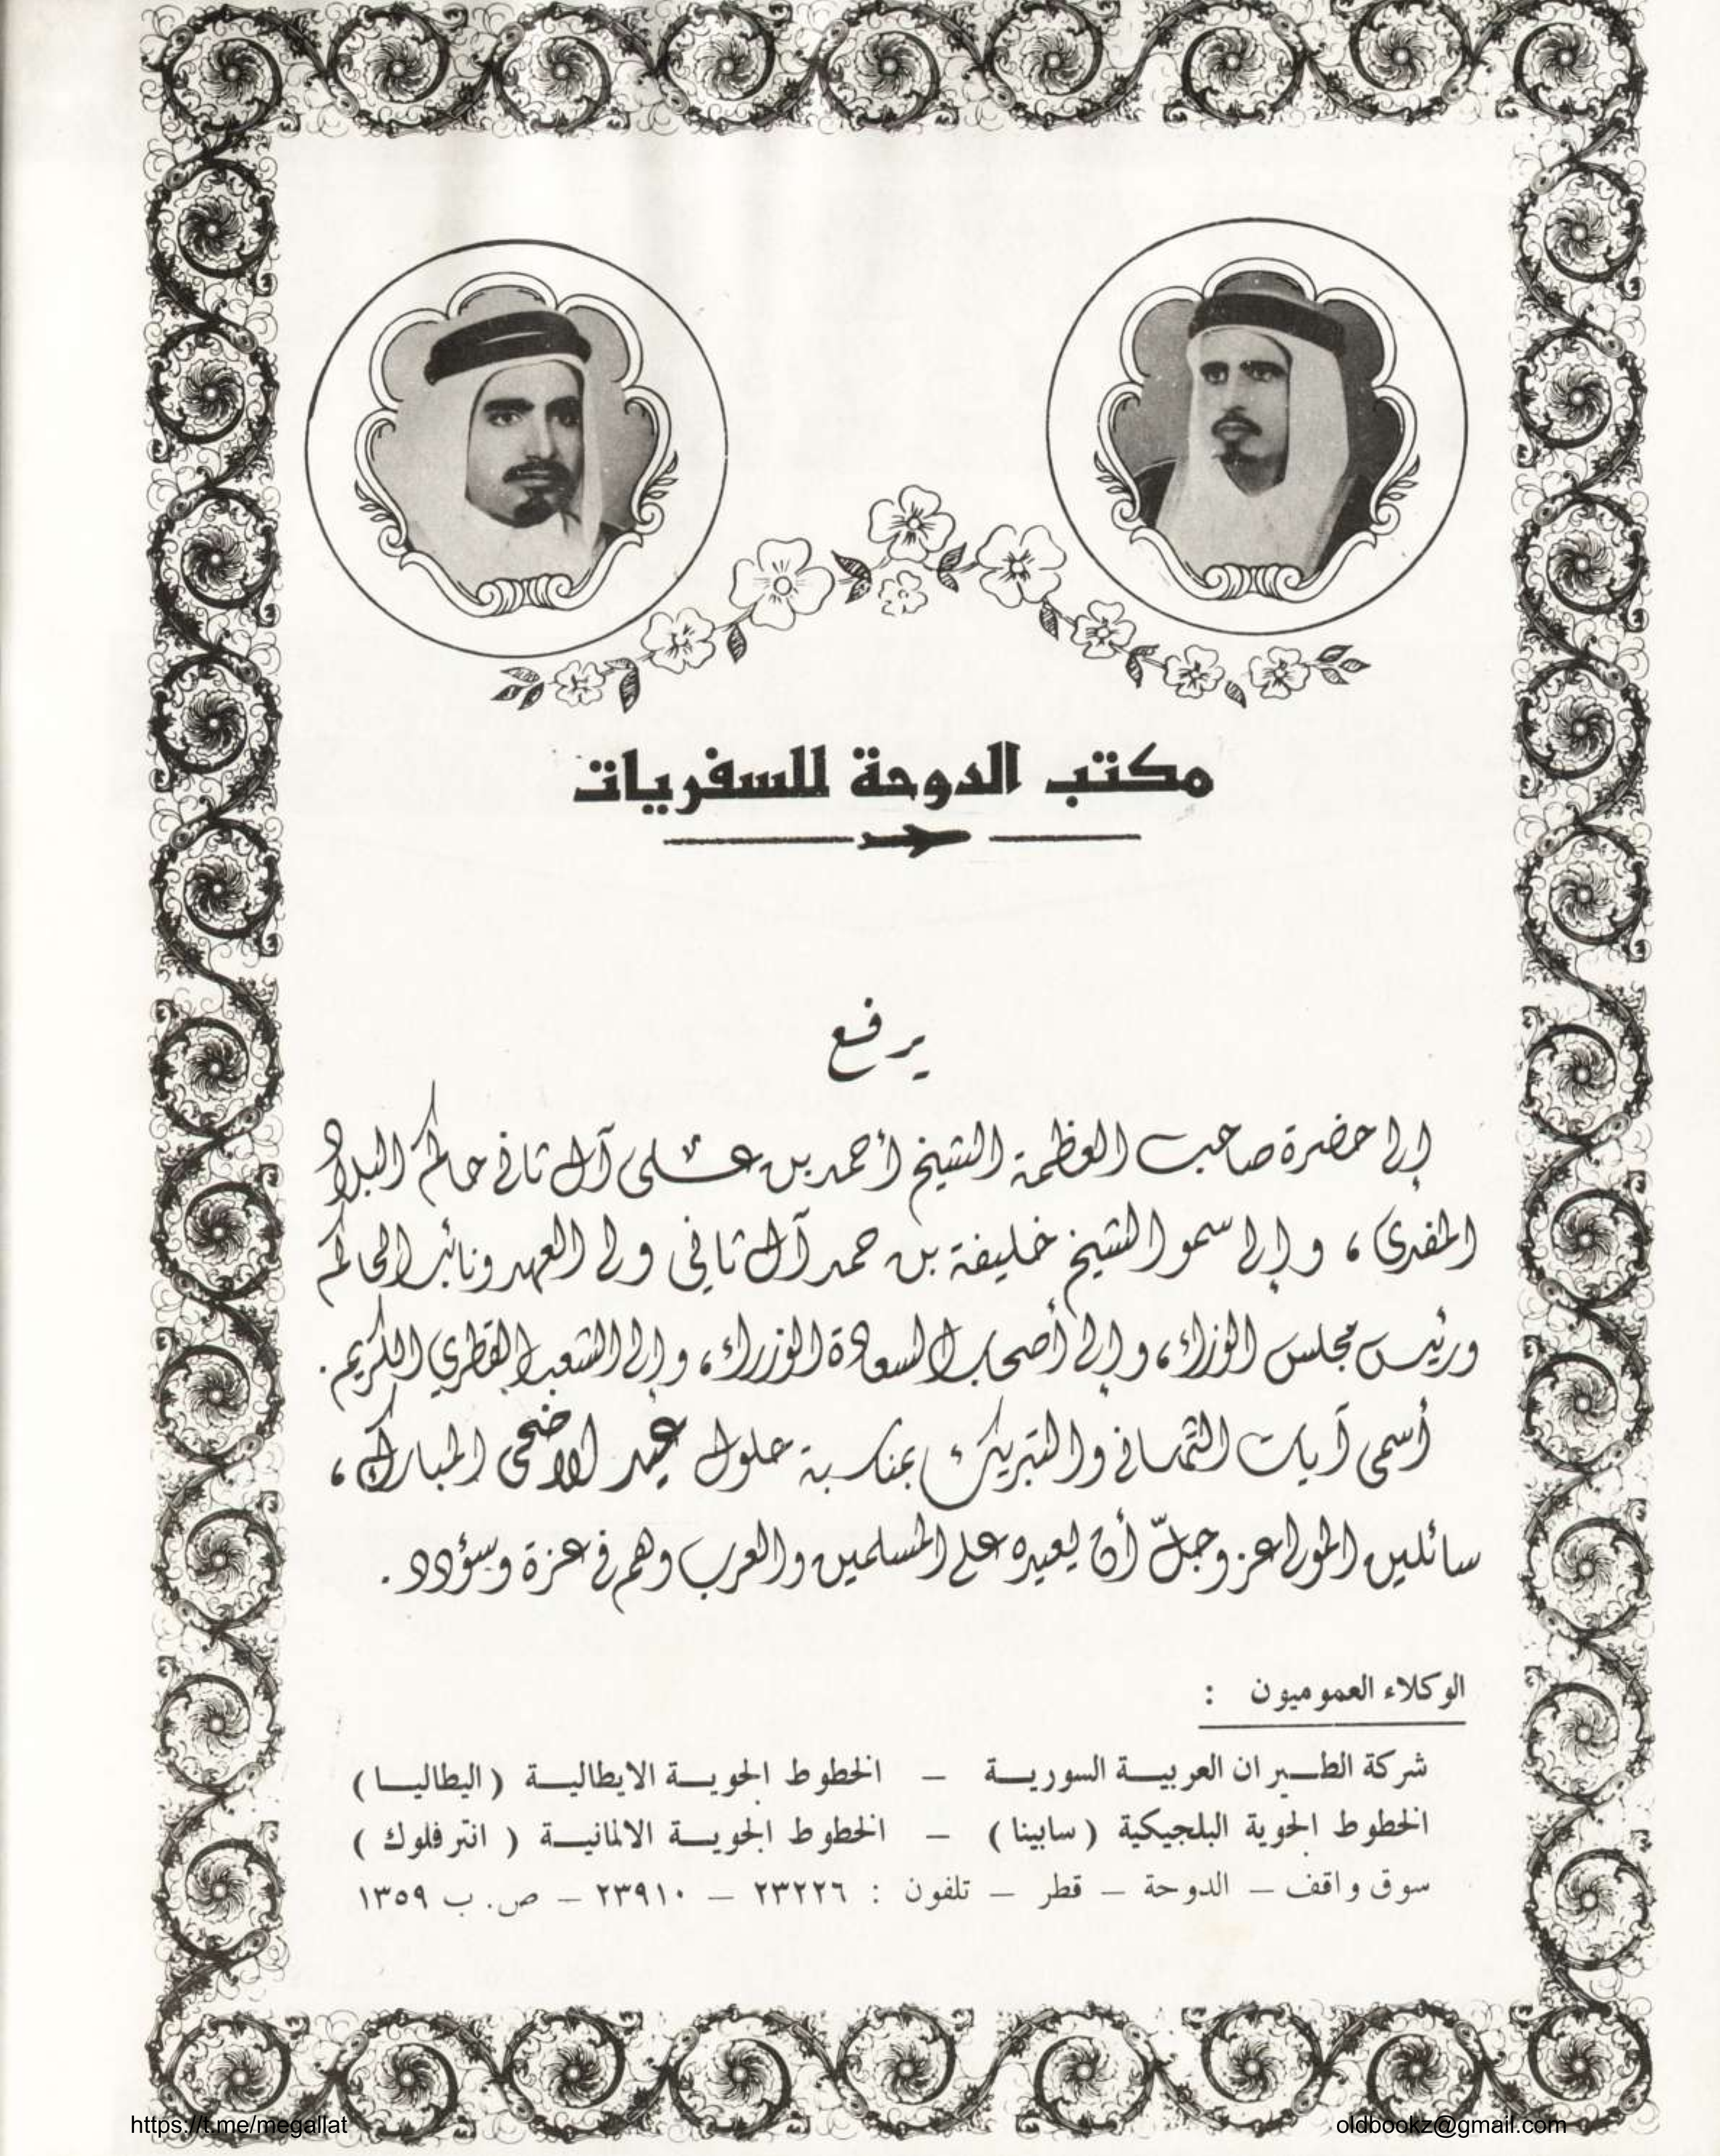 مكتب الدوحة للسفريات
يرفع
إلى حضرة صاحب العظمة الشيخ أحمد بن علي آل ثاني حاكم البلاد
المفدى ، وإلى سمو الشيخ خليفة بن حمد آل ثاني ولي العهد ونائب الحاكم
ورئيس مجلس الوزراء ، وإلى أصحاب السعادة الوزراء ، وإلى الشعب القطري الكريم .
أسمى آيات التهاني والتبريك بمناسبة حلول عيد الاضحى المبارك ،
سائلين المولى عز وجلّ أن يعيده على المسلمين والعرب وهم في عزة وسؤدد .
الوكلاء العموميون :
شركة الطيران العربية السورية – الخطوط الجوية الايطالية ( اليطاليا )
الخطوط الجوية البلجيكية ( سابينا ) – الخطوط الجوية الالمانية ( انترفلوك )
سوق واقف – الدوحة – قطر – تلفون : ٢٣٢٢٦ – ٢٣٩١٠ – ص. ب ١٣٥٩
https://t.me/megallat
oldbookz@gmail.com